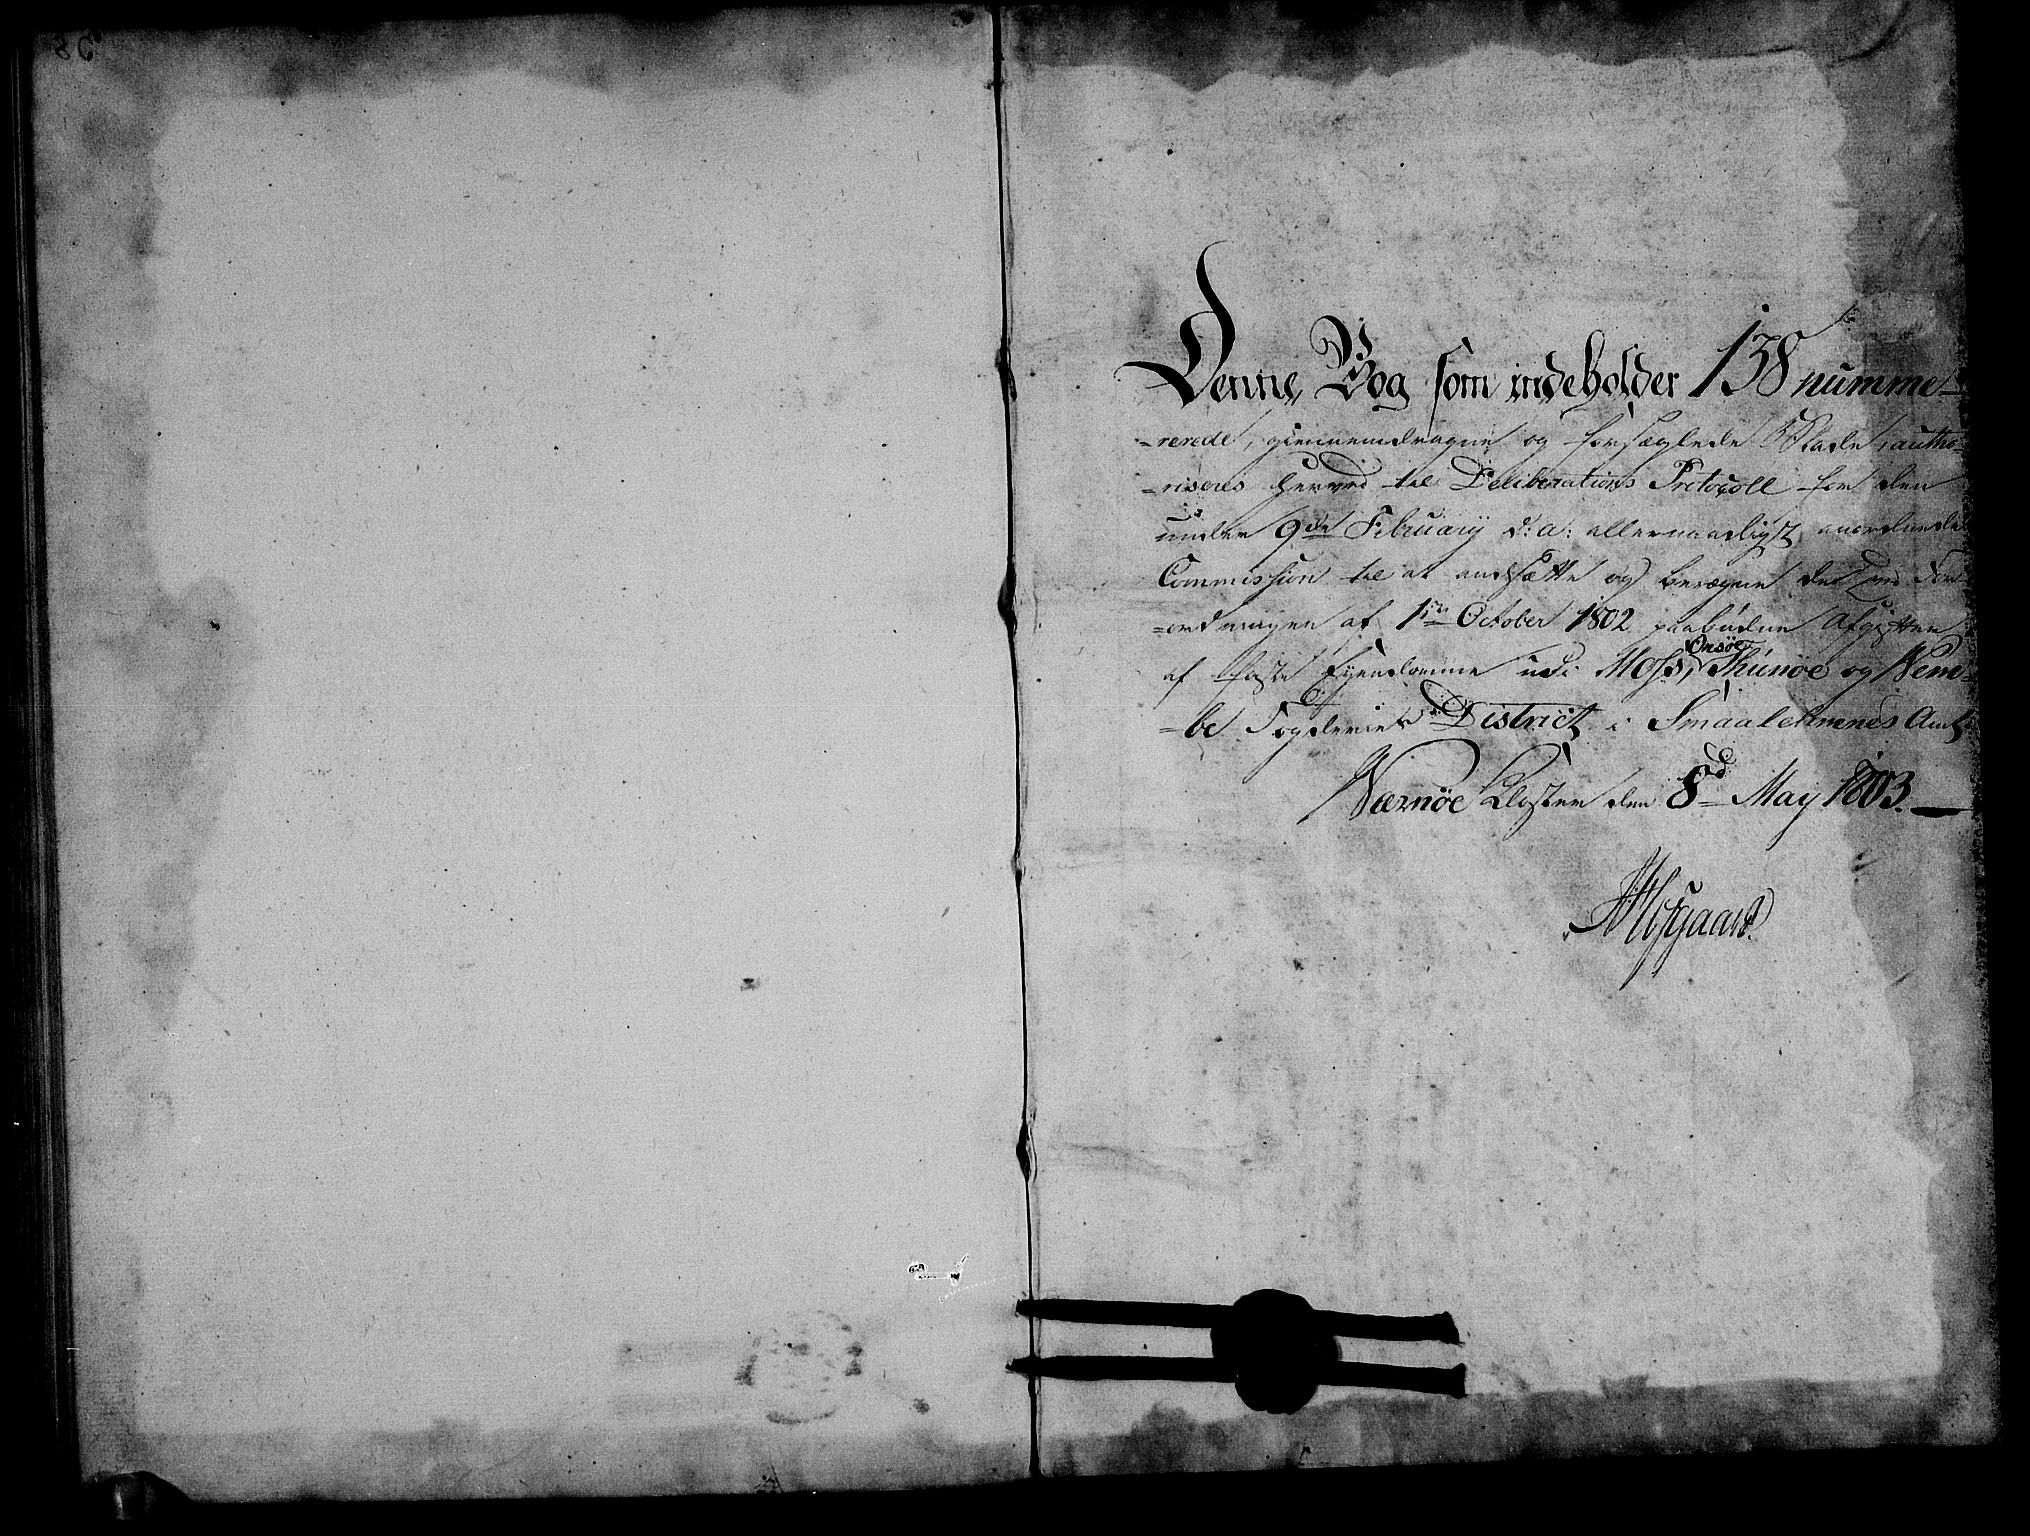 Denne Bog som indeholder 138 numme-
-rerede, giennemdragne og forseglede Blade, autho-
-riseres herved til Deliberations Protocoll for den
under 9de February d: a: allernaadigst anordnede
Commission til at ansætte og beregne de ved For-
-ordningen af 1ste October 1802 paabudne Afgifter
af faste Eyendomme udi Moss, Onsöe, Thunöe og Vem-
-be Fogderies District i Smaalehnenes Amt
Værnöe Kloster den 8d May 1803.